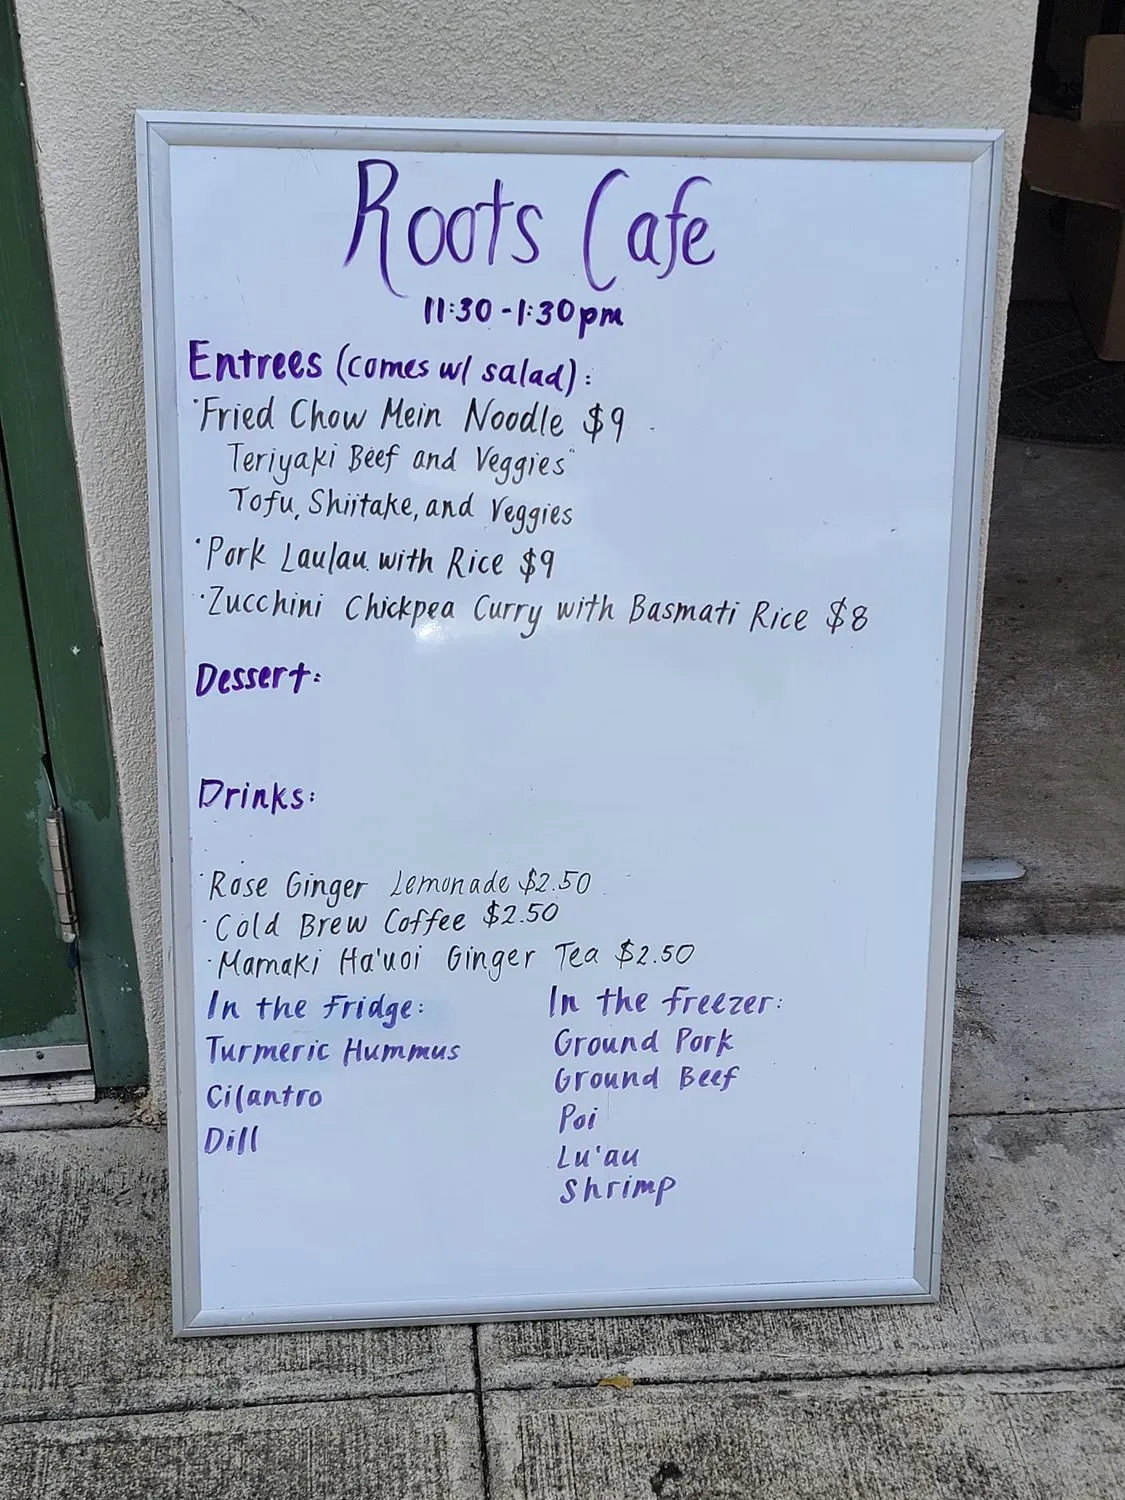 Roots Cafe
11:30-1:30pm
Entrees (comes w/ salad):
·Fried Chow Mein Noodle $9
Teriyaki Beef and Veggies
Tofu, Shiitake, and Veggies
·Pork Laulau with Rice $9
·Zucchini Chickpea Curry with Basmati Rice $8
Dessert:
Drinks:
·Rose Ginger Lemonade $2.50
·Cold Brew Coffee $2.50
·Mamaki Ha'uoi Ginger Tea $2.50
In the Fridge:
Turmeric Hummus
Cilantro
Dill
In the freezer:
Ground Pork
Ground Beef
Poi
Lu'au
Shrimp